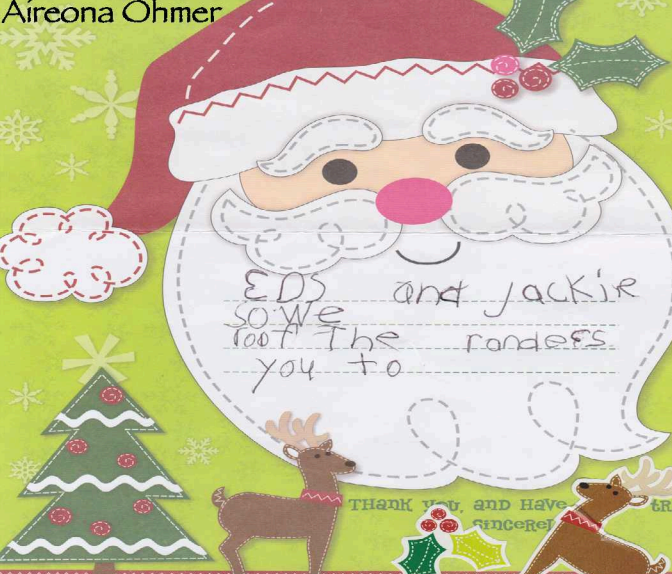 Aireona Ohmer
EDS and Jackie
so we
root The ronders
you to
Thank you, and Have